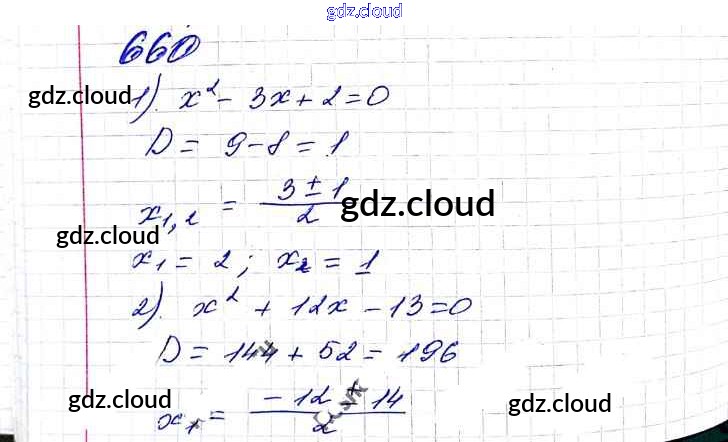 gdz.cloud
660
gdz.cloud 1). x² - 3x + 2 = 0
D = 9 - 8 = 1
x₁,₂ = (3 ± 1)/2 gdz.cloud
gdz.cloud
x₁ = 2; x₂ = 1
2). x² + 12x - 13 = 0
D = 144 + 52 = 196
gdz.cloud x₁ = (-12 + 14)/2 gdz.cloud